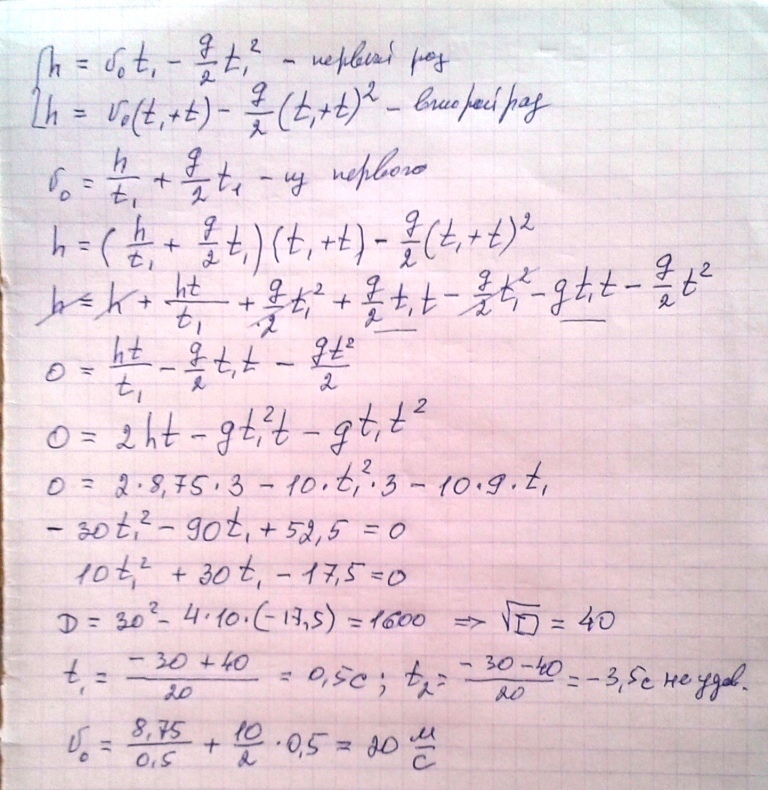 h = v₀t₁ - g/2 t₁² - первый раз
h = v₀(t₁+t) - g/2 (t₁+t)² - второй раз
v₀ = h/t₁ + g/2 t₁ - из первого
h = (h/t₁ + g/2 t₁)(t₁+t) - g/2 (t₁+t)²
h = h + ht/t₁ + g/2 t₁² + g/2 t₁t - g/2 t₁² - gt₁t - g/2 t²
0 = ht/t₁ - g/2 t₁t - gt²/2
0 = 2ht - gt₁²t - gt₁t²
0 = 2·8,75·3 - 10·t₁²·3 - 10·9·t₁
- 30t₁² - 90t₁ + 52,5 = 0
10t₁² + 30t₁ - 17,5 = 0
D = 30² - 4·10·(-17,5) = 1600 ⇒ √D = 40
t₁ = (-30+40)/20 = 0,5с; t₂ = (-30-40)/20 = -3,5с не удов.
v₀ = 8,75/0,5 + 10/2 · 0,5 = 20 м/с